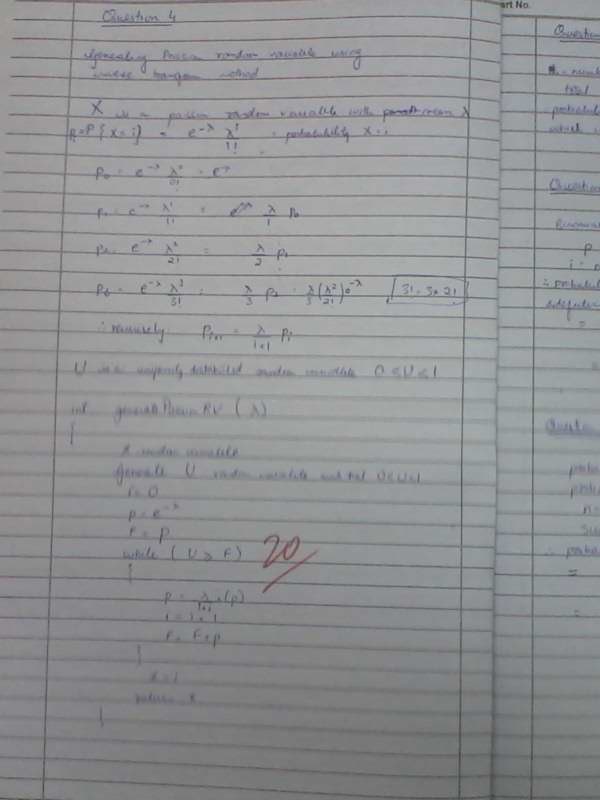 Question 4
Generating Poisson random variable using
inverse transform method
X is a possion random variable with mean λ
Pi = P{X = i} = e^-λ λ^i / i! = probability X = i
P0 = e^-λ λ^0 / 0! = e^-λ
P1 = e^-λ λ^1 / 1! = λ/1 P0
P2 = e^-λ λ^2 / 2! = λ/2 P1
P3 = e^-λ λ^3 / 3! = λ/3 P2 = λ/3 (λ^2 / 2!) e^-λ 3! = 3 × 2!
∴ recursively Pi+1 = λ / i+1 Pi
U is a uniformly distributed random variable 0 ≤ U ≤ 1
int generate Poisson RV (λ)
{
X random variable
generate U random variable such that 0 ≤ U ≤ 1
i = 0
p = e^-λ
F = p
while (U ≥ F)
20
{
p = λ / i+1 × (p)
i = i + 1
F = F + p
}
X = i
return X
}
art No.
Question
= number
total
probabil
which
Question
Binomial
p
i =
∴ probabil
=
=
Question
proba
proba
n =
∴ proba
=
=